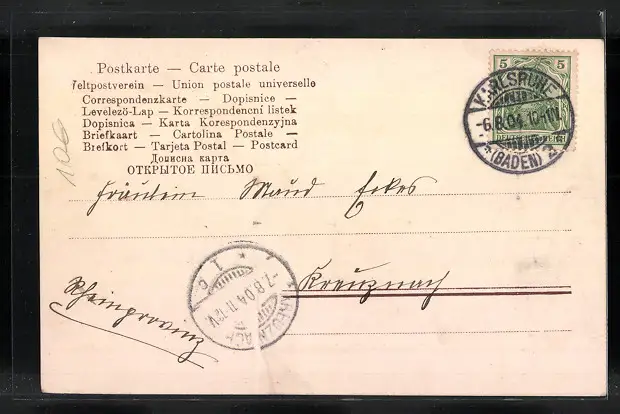 Postkarte — Carte postale
Feltpostverein — Union postale universelle
Correspondenzkarte — Dopisnice —
Levelezö-Lap — Korrespondencní listek
Dopisnica — Karta Korespondenzyjna
Briefkaart — Cartolina Postale —
Brefkort — Tarjeta Postal — Postcard
Дописна карта
ОТКРЫТОЕ ПИСЬМО
5 5
KARLSRUHE
-6.8.04. 10-11V
(BADEN) 2
106
Fräulein Maud
Kreuznach
Rheinprovinz
* 1 c
-7.8.04. 11-12V.